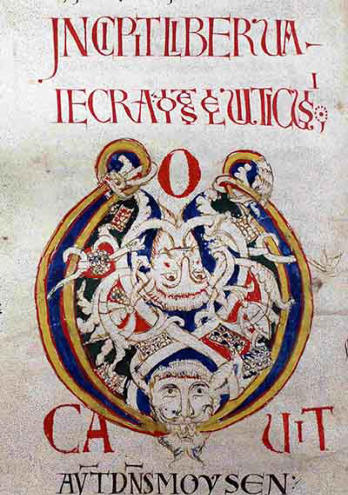 INCIPIT LIBER UA-
IECRA LEUITICUS;
V
O
CA UIT
AUT̄ DN̄S MOYSEN: